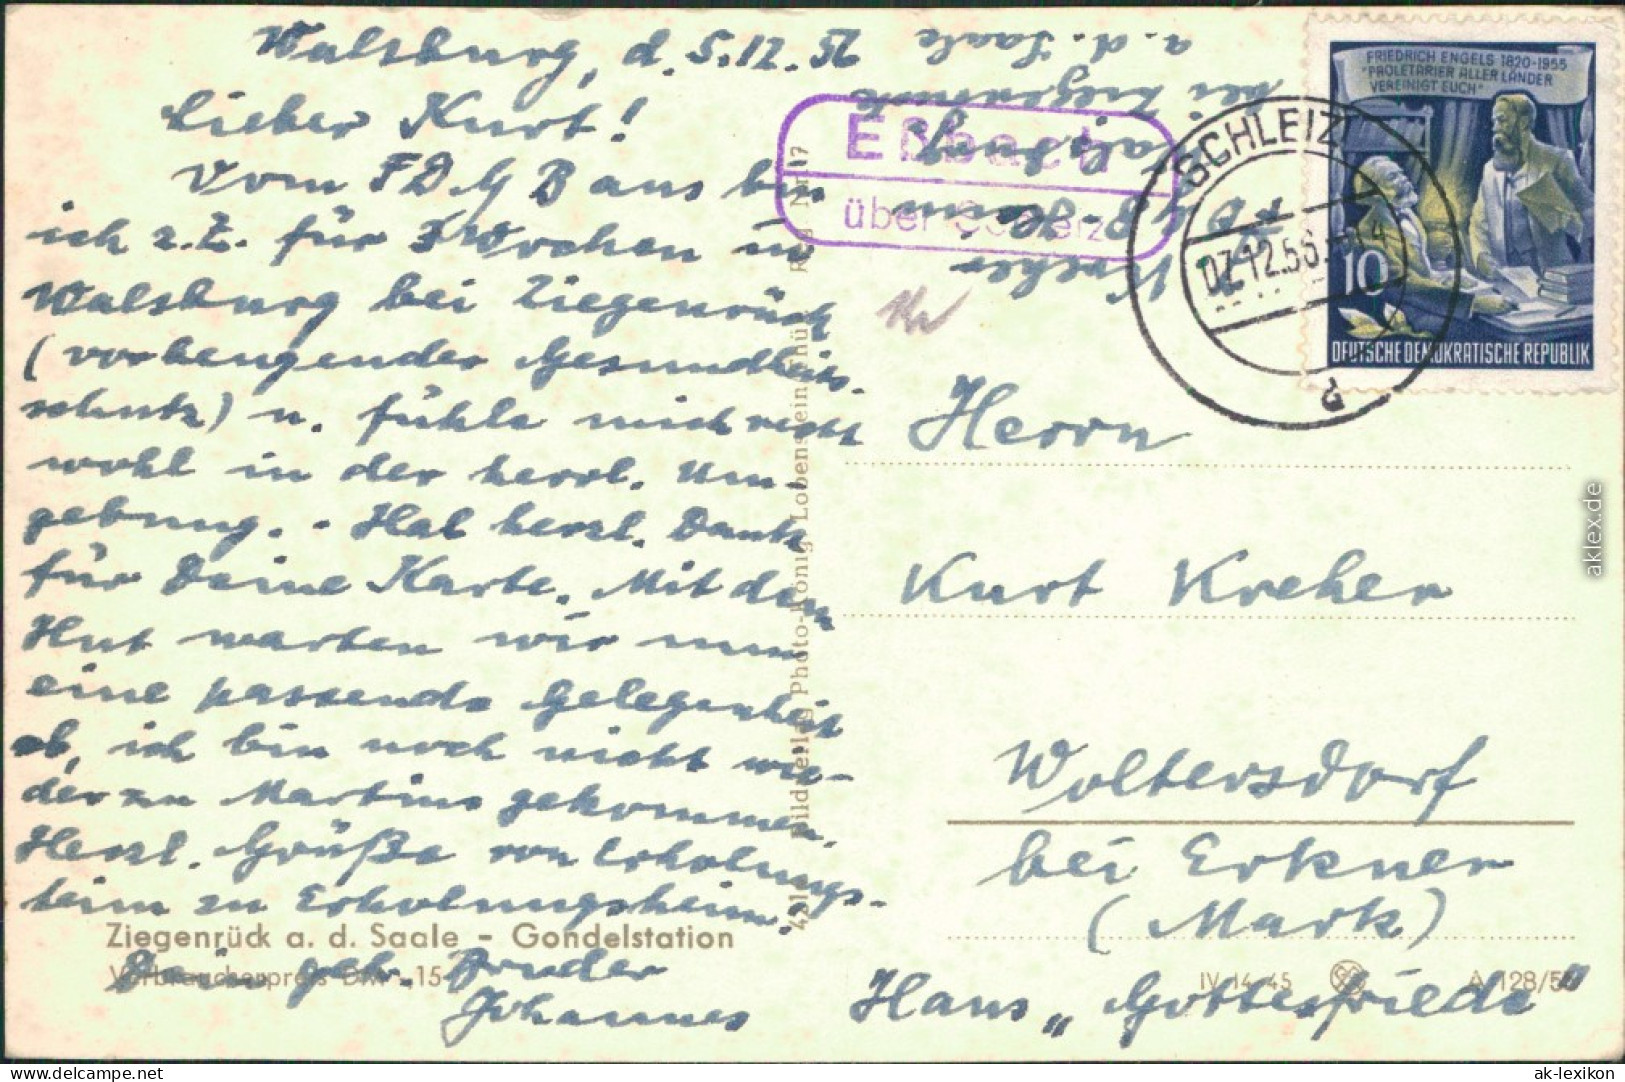 Walsburg, d. 5.12.56
Lieber Kurt!
Vom FDGB aus bin
ich z.Z. für 3 Wochen in
Walsburg bei Ziegenrück
(vorbeugender Gesundheits-
schutz) u. fühle mich recht
wohl in der herrl. Um-
gebung. - Hab herzl. Dank
für Deine Karte. Mit dem
Hut warten wir nun
eine passende Gelegenheit
ab, ich bin noch nicht wie-
der zu Martins gekommen.
Herzl. Grüße von Erholungs-
heim zu Erholungsheim.
Dein Bruder
Johannes
Ziegenrück a. d. Saale - Gondelstation
Verbraucherpreis DM -,15
Kreher
FDGB-Heim
Walsburg
bei Ziegenrück
a. d. Saale
Eßbach
über Schleiz
SCHLEIZ
07.12.56
FRIEDRICH ENGELS 1820-1955
"PROLETARIER ALLER LÄNDER
VEREINIGT EUCH"
10
DEUTSCHE DEMOKRATISCHE REPUBLIK
Herrn
Kurt Kreher
Woltersdorf
bei Erkner
(Mark)
Haus „Gottesfriede“
IV-14-45 A 128/56
Bildverlag Photo-König, Lobenstein
aklex.de
www.delcampe.net
ak-lexikon